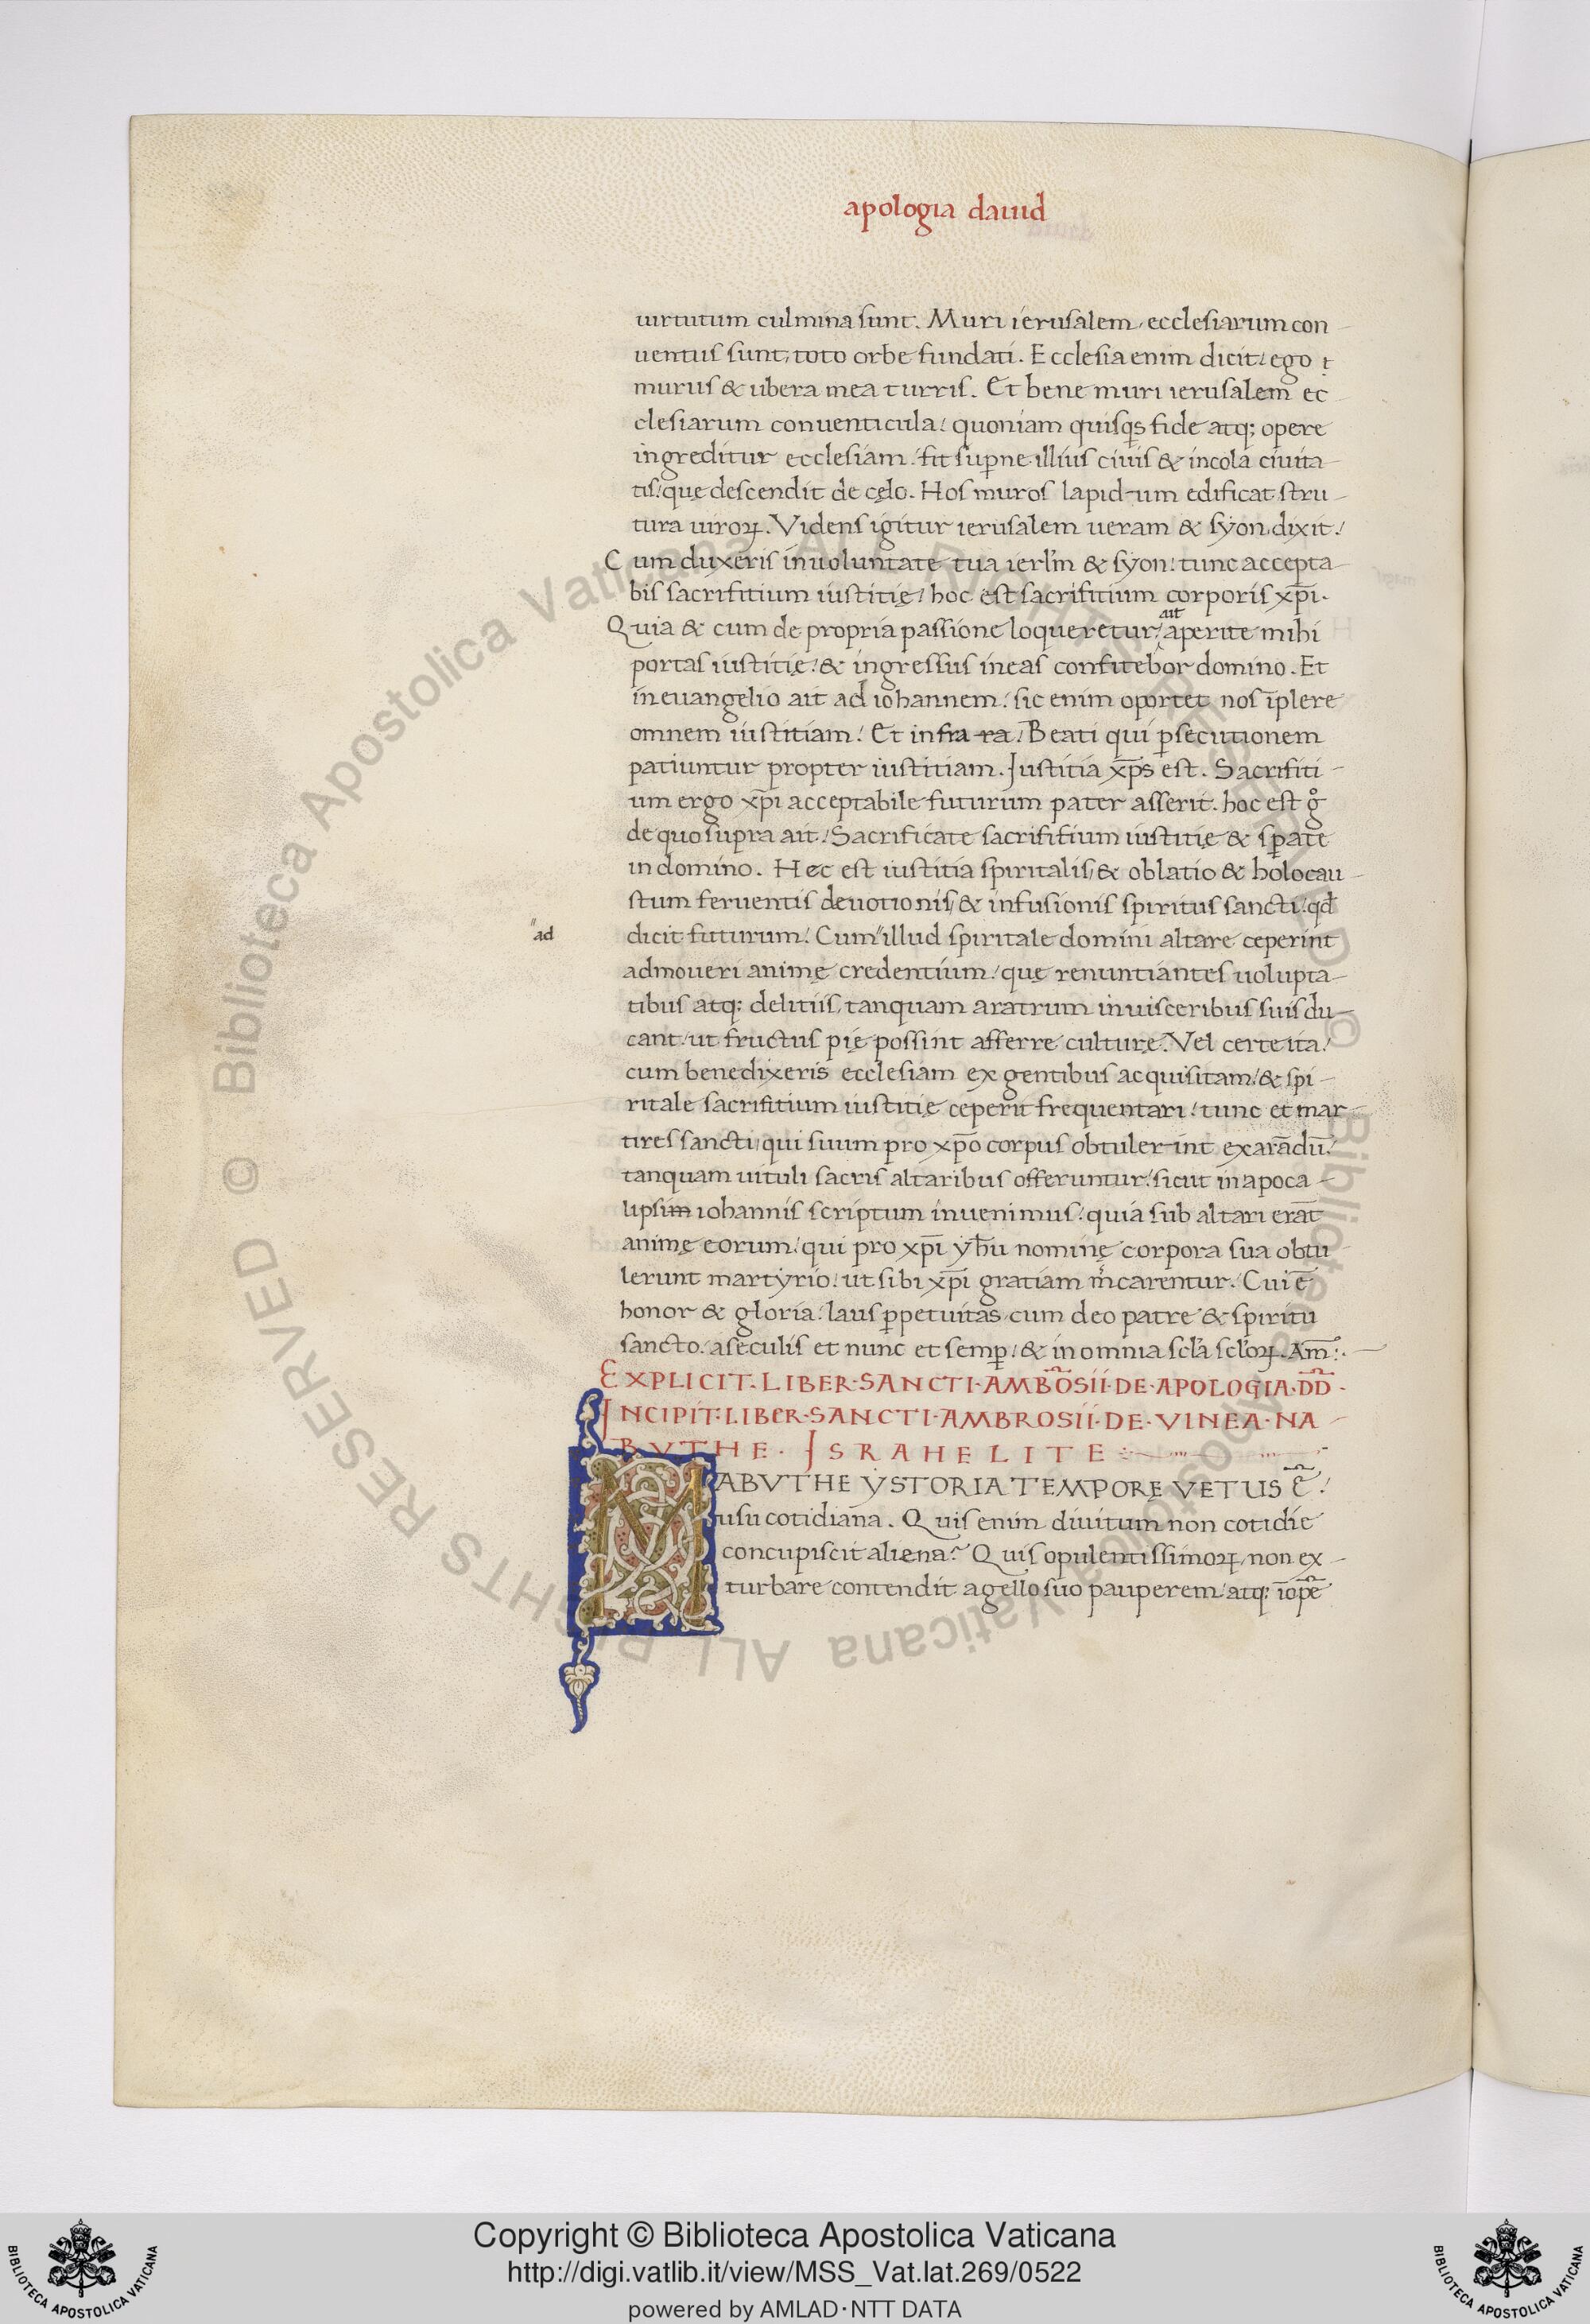 apologia dauid
uirtutum culmina sunt. Muri ierusalem, ecclesiarum con
uentus sunt, toto orbe fundati. Ecclesia enim dicit/ ego
murus & ubera mea turris. Et bene muri ierusalem ec
clesiarum conuenticula/ quoniam quisq̄s fide atq; opere
ingreditur ecclesiam/ fit suꝑne illius ciuis & incola ciuita
tis/ quę descendit de cęlo. Hos muros lapidum edificat stru
tura uiroꝝ. Videns igitur ierusalem ueram & syon dixit/
Cum duxeris in uoluntate tua ierl'm & syon/ tunc accepta
bis sacrifitium iustitię/ hoc est sacrifitium corporis xp̄i.
Quia & cum de propria passione loqueretur/ ait aperite mihi
portas iustitię/ & ingressus in eas confitebor domino. Et
in euangelio ait ad iohannem/ sic enim oportet nos īplere
omnem iustitiam/ Et infra ra/ Beati qui ꝑsecutionem
patiuntur propter iustitiam. Justitia xp̄s est. Sacrifiti
um ergo xp̄i acceptabile futurum pater asserit. hoc est gº
de quo supra ait/ Sacrificate sacrifitium iustitię & sꝑate
in domino. Hec est iustitia spiritalis, & oblatio & holocau
stum feruentis deuotionis, & infusionis spiritus sancti/ qd̄
ad
dicit futurum/ Cum" illud spiritale domini altare ceperint
admoueri animę credentium/ quę renuntiantes uolupta
tibus atq; delitiis, tanquam aratrum in uisceribus suis du
cant/ ut fructus pię possint afferre culturę. Vel certe ita/
cum benedixeris ecclesiam ex gentibus acquisitam/ & spi
ritale sacrifitium iustitię ceperit frequentari/ tunc et mar
tires sancti, qui suum pro xp̄o corpus obtulerint exarādū/
tanquam uituli sacris altaribus offeruntur/ sicut in apoca
lipsim iohannis scriptum inuenimus/ quia sub altari erāt
animę eorum/ qui pro xp̄i yħu nominę corpora sua obtu
lerunt martyrio/ ut sibi xp̄i gratiam m̄carentur. Cui ē
honor & gloria/ laus ꝑpetuitas cum deo patre & spiritu
sancto/ a seculis et nunc et semꝑ/ & in omnia scl'a scl'oꝝ. Am̄:.
EXPLICIT. LIBER. SANCTI. AMBOSII. DE. APOLOGIA. D̄D̄.
INCIPIT. LIBER. SANCTI. AMBROSII. DE. VINEA. NA
BVTHE. ISRAHELITE
NABVTHE YSTORIA TEMPORĘ VETUS Ē/
usu cotidiana. Quis enim diuitum non cotidie
concupiscit aliena? Quis opulentissimoꝝ, non ex
turbare contendit agello suo pauperem/ atq; īopē
Copyright © Biblioteca Apostolica Vaticana
http://digi.vatlib.it/view/MSS_Vat.lat.269/0522
powered by AMLAD·NTT DATA
BIBLIOTECA APOSTOLICA VATICANA
BIBLIOTECA APOSTOLICA VATICANA
© Biblioteca Apostolica Vaticana ALL RIGHTS RESERVED © Biblioteca Apostolica Vaticana ALL RIGHTS RESERVED